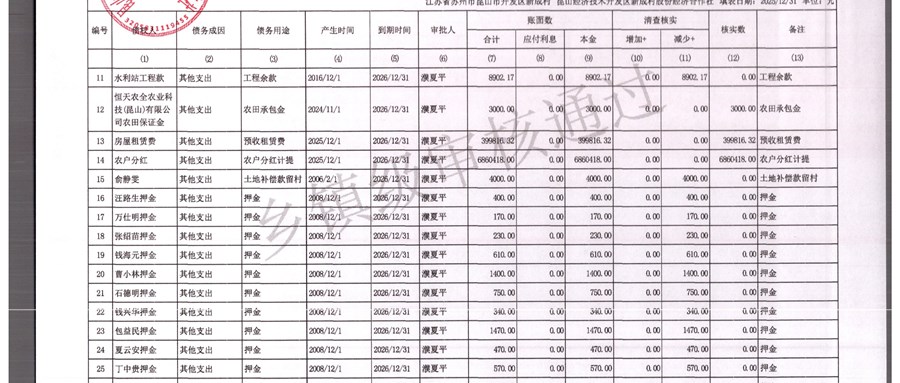 江苏省苏州市昆山市开发区新成村 昆山经济技术开发区新成村股份经济合作社 填表日期: 2025/12/31 单位: 元
3205831119455
编号 债权人 债务成因 债务用途 产生时间 到期时间 审批人 账面数 清查核实 核实数 备注
合计 应付利息 本金 增加+ 减少+
(1) (2) (3) (4) (5) (6) (7) (8) (9) (10) (11) (12) (13)
11 水利站工程款 其他支出 工程余款 2016/12/1 2026/12/31 濮夏平 8902.17 0.00 8902.17 0.00 8902.17 0.00 工程余款
12 恒天农全农业科技(昆山)有限公司农田保证金 其他支出 农田承包金 2024/11/1 2026/12/31 濮夏平 3000.00 0.00 3000.00 0.00 0.00 3000.00 农田承包金
13 房屋租赁费 其他支出 预收租赁费 2025/12/1 2026/12/31 濮夏平 399816.32 0.00 399816.32 0.00 0.00 399816.32 预收租赁费
14 农户分红 其他支出 农户分红计提 2025/12/1 2026/12/31 濮夏平 6860418.00 0.00 6860418.00 0.00 0.00 6860418.00 农户分红计提
15 俞静雯 其他支出 土地补偿款留村 2006/2/1 2026/12/31 濮夏平 4000.00 0.00 4000.00 0.00 4000.00 0.00 土地补偿款留村
16 汪路生押金 其他支出 押金 2008/12/1 2026/12/31 濮夏平 400.00 0.00 400.00 0.00 400.00 0.00 押金
17 万仕明押金 其他支出 押金 2008/12/1 2026/12/31 濮夏平 170.00 0.00 170.00 0.00 170.00 0.00 押金
18 张绍苗押金 其他支出 押金 2008/12/1 2026/12/31 濮夏平 230.00 0.00 230.00 0.00 230.00 0.00 押金
19 钱海元押金 其他支出 押金 2008/12/1 2026/12/31 濮夏平 610.00 0.00 610.00 0.00 610.00 0.00 押金
20 曹小林押金 其他支出 押金 2008/12/1 2026/12/31 濮夏平 1400.00 0.00 1400.00 0.00 1400.00 0.00 押金
21 石德明押金 其他支出 押金 2008/12/1 2026/12/31 濮夏平 750.00 0.00 750.00 0.00 750.00 0.00 押金
22 钱兴华押金 其他支出 押金 2008/12/1 2026/12/31 濮夏平 340.00 0.00 340.00 0.00 340.00 0.00 押金
23 包益民押金 其他支出 押金 2008/12/1 2026/12/31 濮夏平 1470.00 0.00 1470.00 0.00 1470.00 0.00 押金
24 夏云安押金 其他支出 押金 2008/12/1 2026/12/31 濮夏平 470.00 0.00 470.00 0.00 470.00 0.00 押金
25 丁中贵押金 其他支出 押金 2008/12/1 2026/12/31 濮夏平 570.00 0.00 570.00 0.00 570.00 0.00 押金
乡镇级审核通过